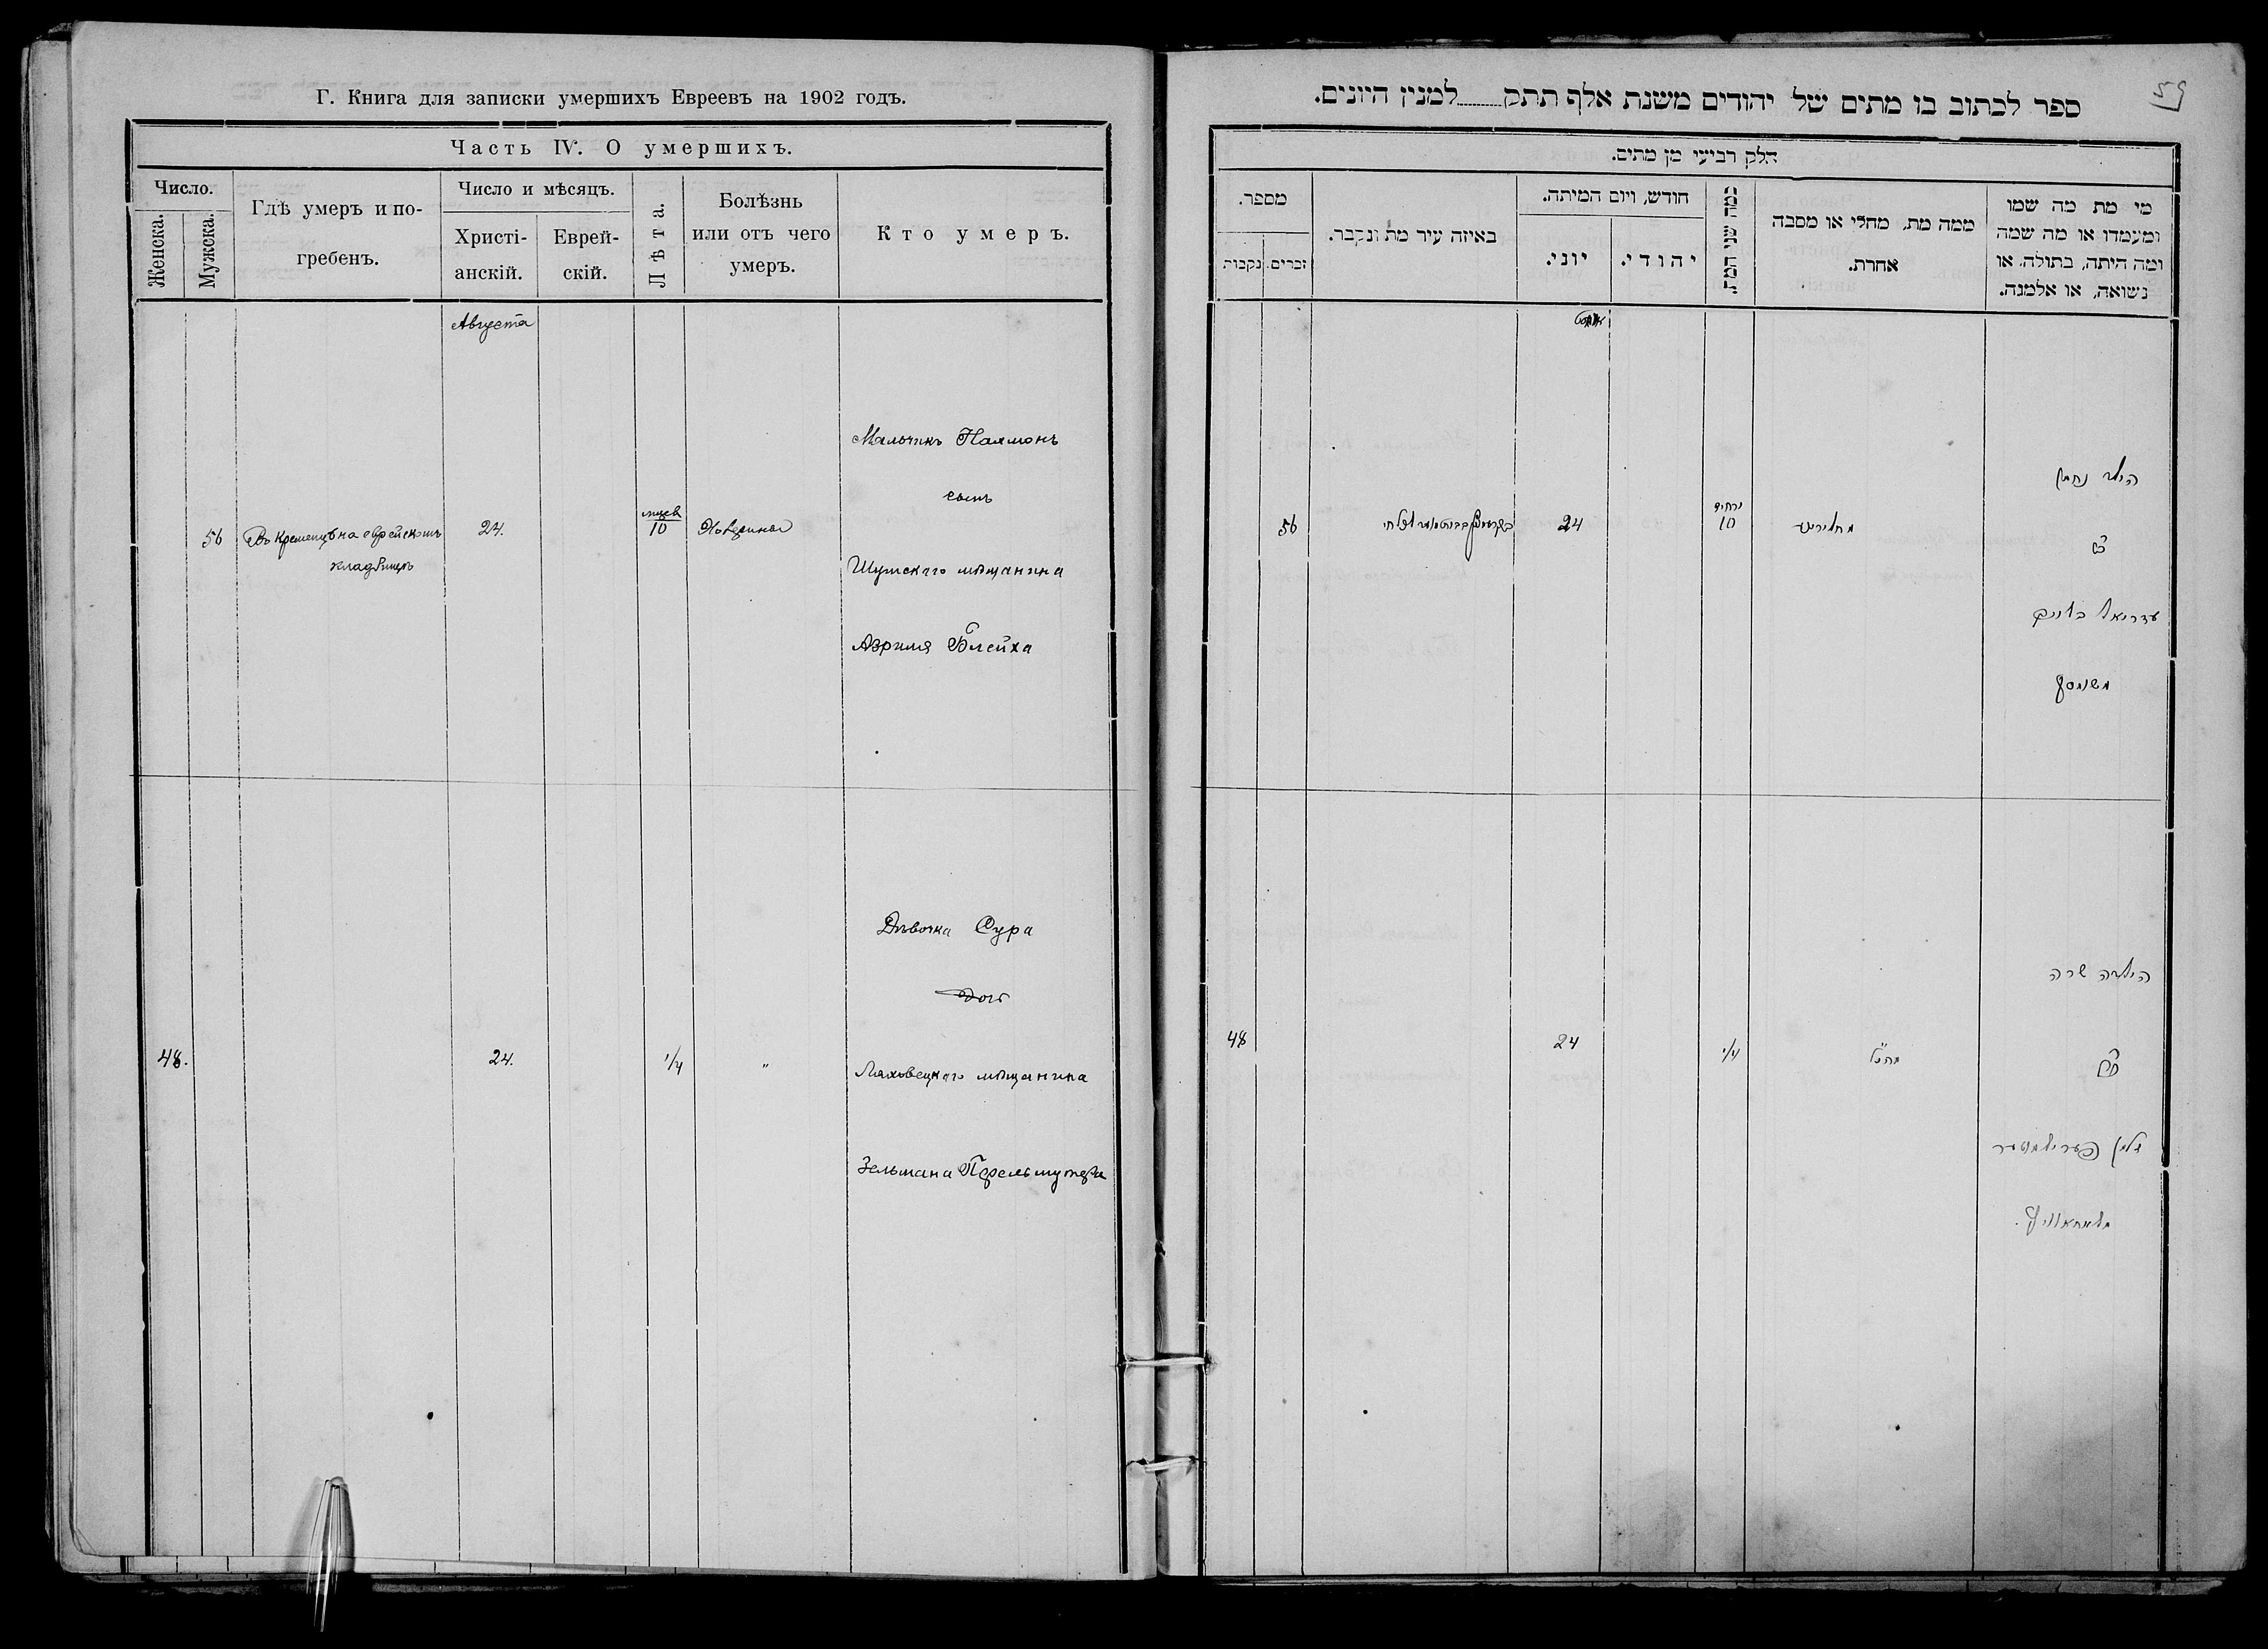 Г. Книга для записки умершихъ Евреевъ на 1902 годъ.
Часть IV. О умершихъ.
Число.
Женска.
Мужска.
Гдѣ умеръ и по-
гребенъ.
Число и мѣсяцъ.
Христі-
анскій.
Еврей-
скій.
Лѣта.
Болѣзнь
или отъ чего
умеръ.
Кто умеръ.
Августа
Мальчикъ
сынъ
56 Въ Кременцѣ на еврейскомъ 24. мцев 10
кладбищѣ
Шумскаго мѣщанина
Азриля Блейха
Дѣвочка Сура
дочь
48. 24. 1/4 "
Ляховецкаго мѣщанина
Зельмана Перельмутера
59
ספר לכתוב בו מתים של יהודים משנת אלף תתק למנין היונים.
חלק רביעי מן מתים.
מספר.
נקבות
זכרים.
באיזה עיר מת ונקבר.
חודש, ויום המיתה.
יוני.
יהודי.
כמה שני המת.
ממה מת, מחלי או מסבה
אחרת.
מי מת מה שמו
ומעמדו או מה שמה
ומה היתה, בתולה, או
נשואה, או אלמנה.
הילד נחמן
56 24 10
בן
עזריאל בלייך
משומסק
הילדה שרה
48 24 1/4
בת
זלמן פערילמוטער